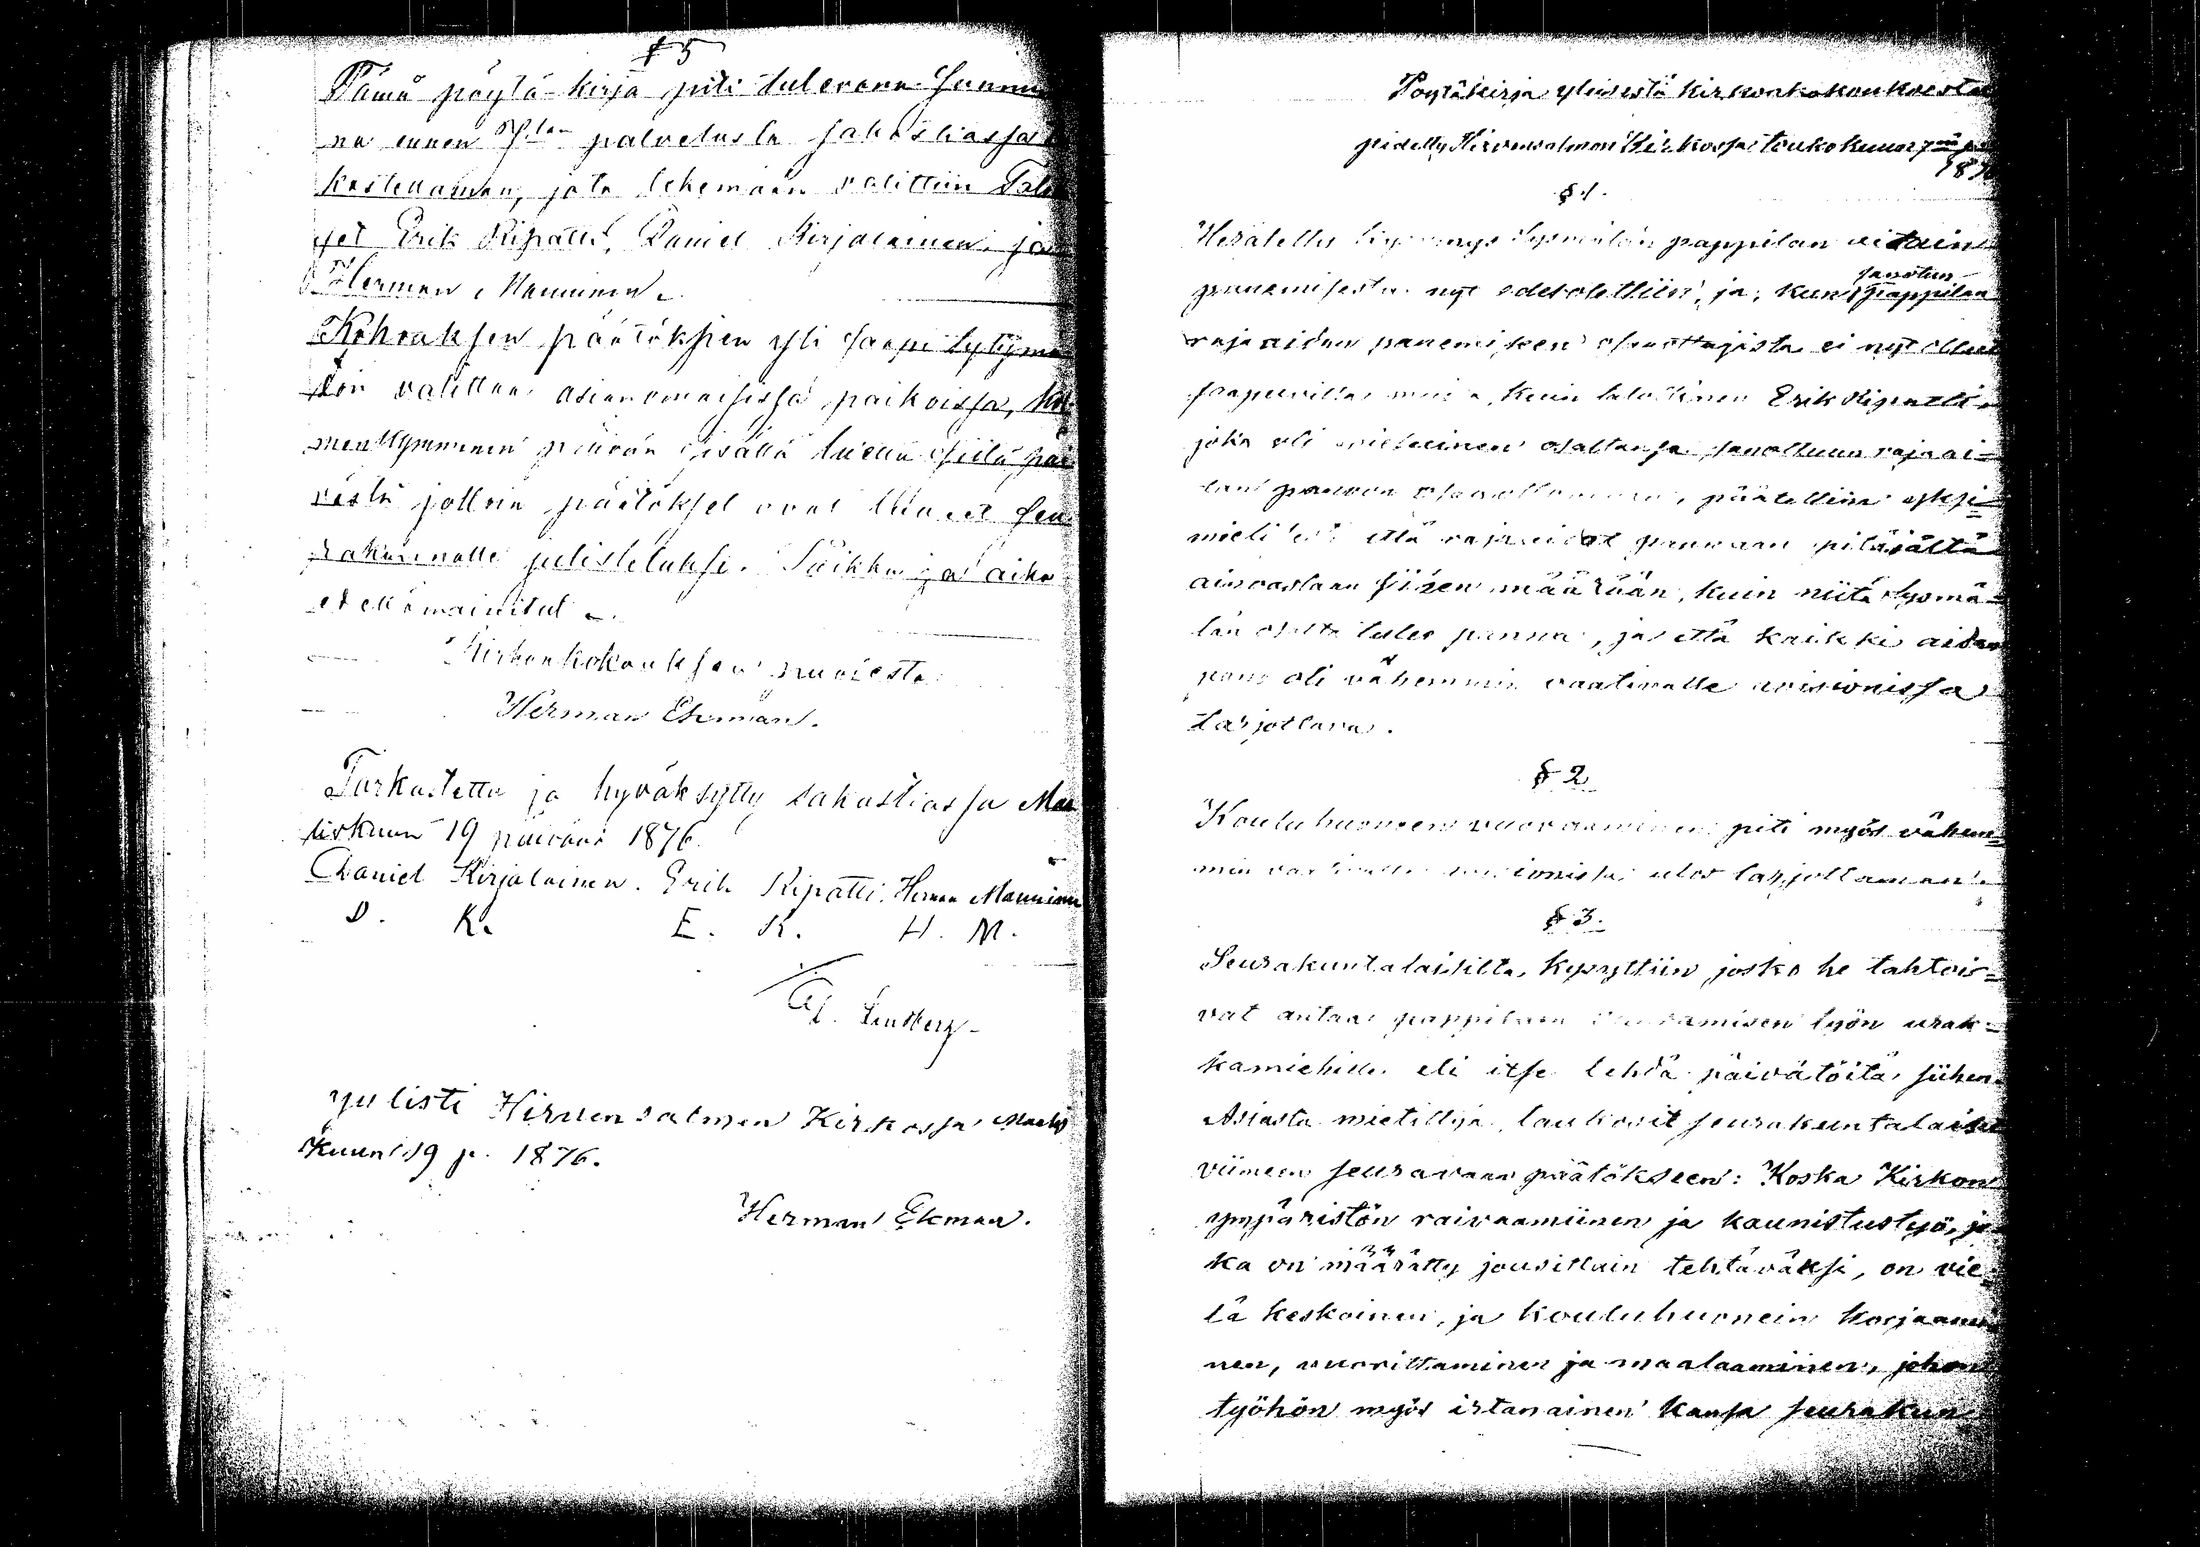 § 5
Tämä pöytä-kirja piti tulevana Sunnu
na ennen Jl.lan palvelusta sakastiassa
kastettaman, jota tekemään valittiin Talo
set Erik Ripatti, Daniel Kirjalainen ja
Herman Manninen.
Kokouksen päätöksien yli saapi tytymä
tön valittaa asianomaisissa paikoissa, kol
menkymmenen päivän sisällä luettu siitä päi
västä jolloin päätökset ovat tulleet seu
rakunnalle julistetuksi. Paikka ja aika
edellämainitut.
Kirkonkokouksen puolesta
Herman Ekman.
Tarkastettu ja hyväksytty sakastiassa Maa
liskuun 19 päivänä 1876.
Daniel Kirjalainen. Erik Ripatti. Herman Manninen
D. K. E. R. H. M.
Lindberg
Julisti Hirvensalmen Kirkossa Maalis
kuun 19 p. 1876.
Herman Ekman.
Pöytäkirja yleisestä kirkonkokouksesta
pidetty Hirvensalmen Kirkossa toukokuun 7 p:nä
187
§ 1.
Herätetty kysymys Lyömälän pappilan aitain
panemisesta nyt edesotettiin, ja, kun sanotun pappilan
raja aidan panemiseen osaottajista ei nyt ollut
saapuvilla muita, kuin talollinen Erik Ripatti
joka oli mieluinen osaltansa sanottuun raja ai=
dan panoon osaa ottamaan, päätettiin yksi=
mielisesti että raja aidat pannaan pitäjältä
ainoastaan siihen määrään, kuin niitä Lyömä=
län osalta tulee panna, ja että kaikki aidan
pano oli vähemmin vaativalle avisionissa
tarjottava.
§ 2
Kouluhuoneen vuoraaminen piti myös vähem=
min vaativalle avisionissa ulos tarjottaman.
§ 3.
Seurakuntalaisilta kysyttiin josko he tahtoi=
vat antaa pappilan misen työn urak=
kamiehille eli itse tehdä päivätöitä siihen.
Asiasta mietittyä, laukosit seurakuntalaiset
viimeen seuraavaan päätökseen: Koska Kirkon
ympäristön raivaamiinen ja kaunistustyö, jo
ka on määrätty jousittain tehtäväksi, on vie=
lä keskoinen, ja kouluhuonein korjaami
nen, vuorittaminen ja maalaaminen, johon
työhön myös istanainen kansa seurakun